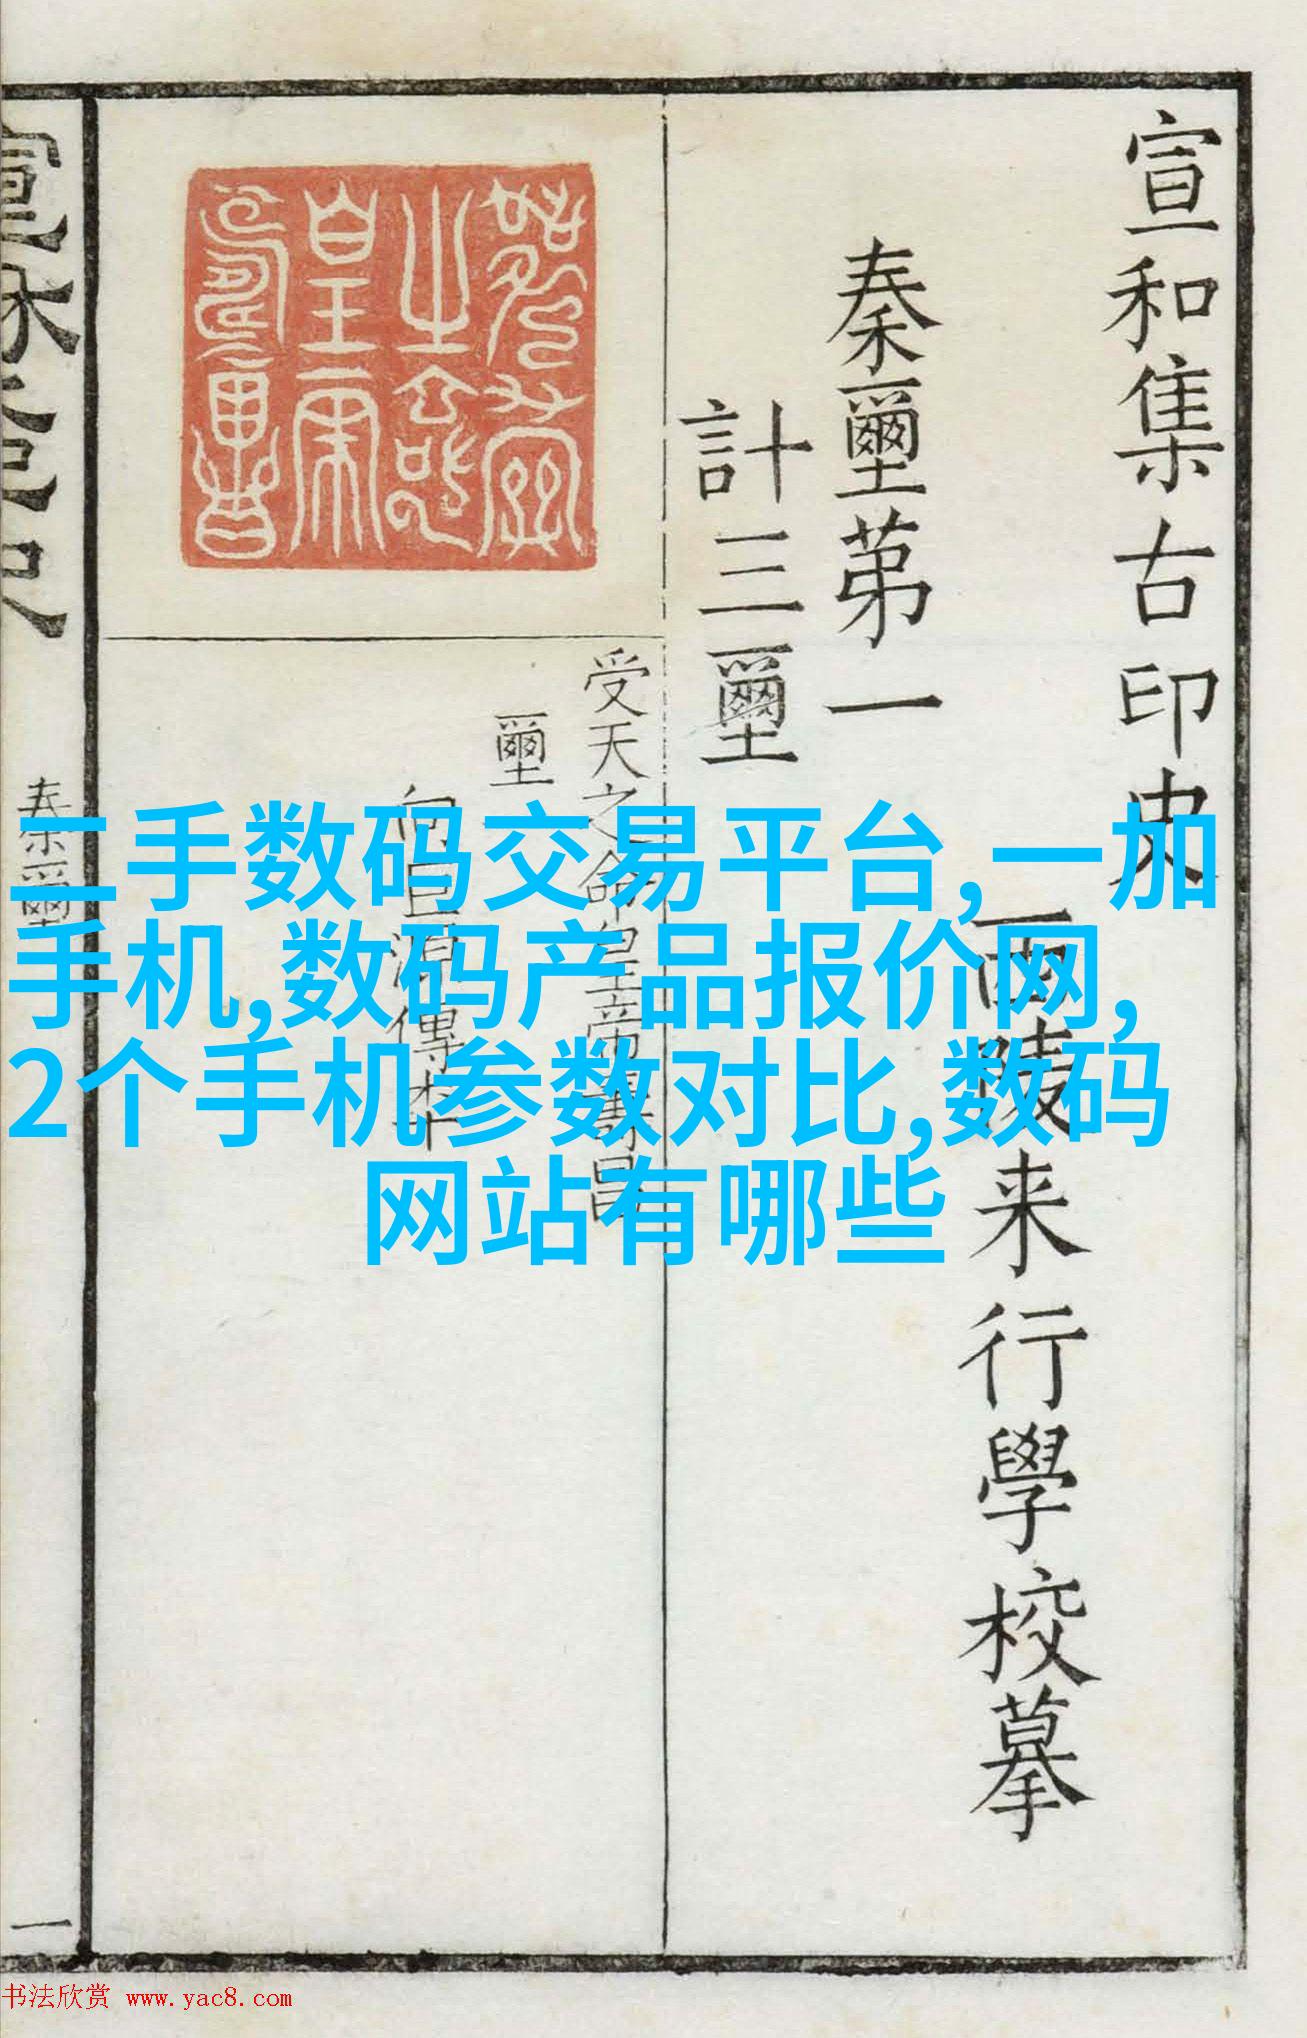 宣和集古印史
西陵来行學校摹
秦璽苐一
計三璽
受天之命皇帝壽昌
璽
向巨源傳本
秦璽
一
二手数码交易平台,一加
手机,数码产品报价网,
2个手机参数对比,数码
网站有哪些
书法欣赏 www.yac8.com